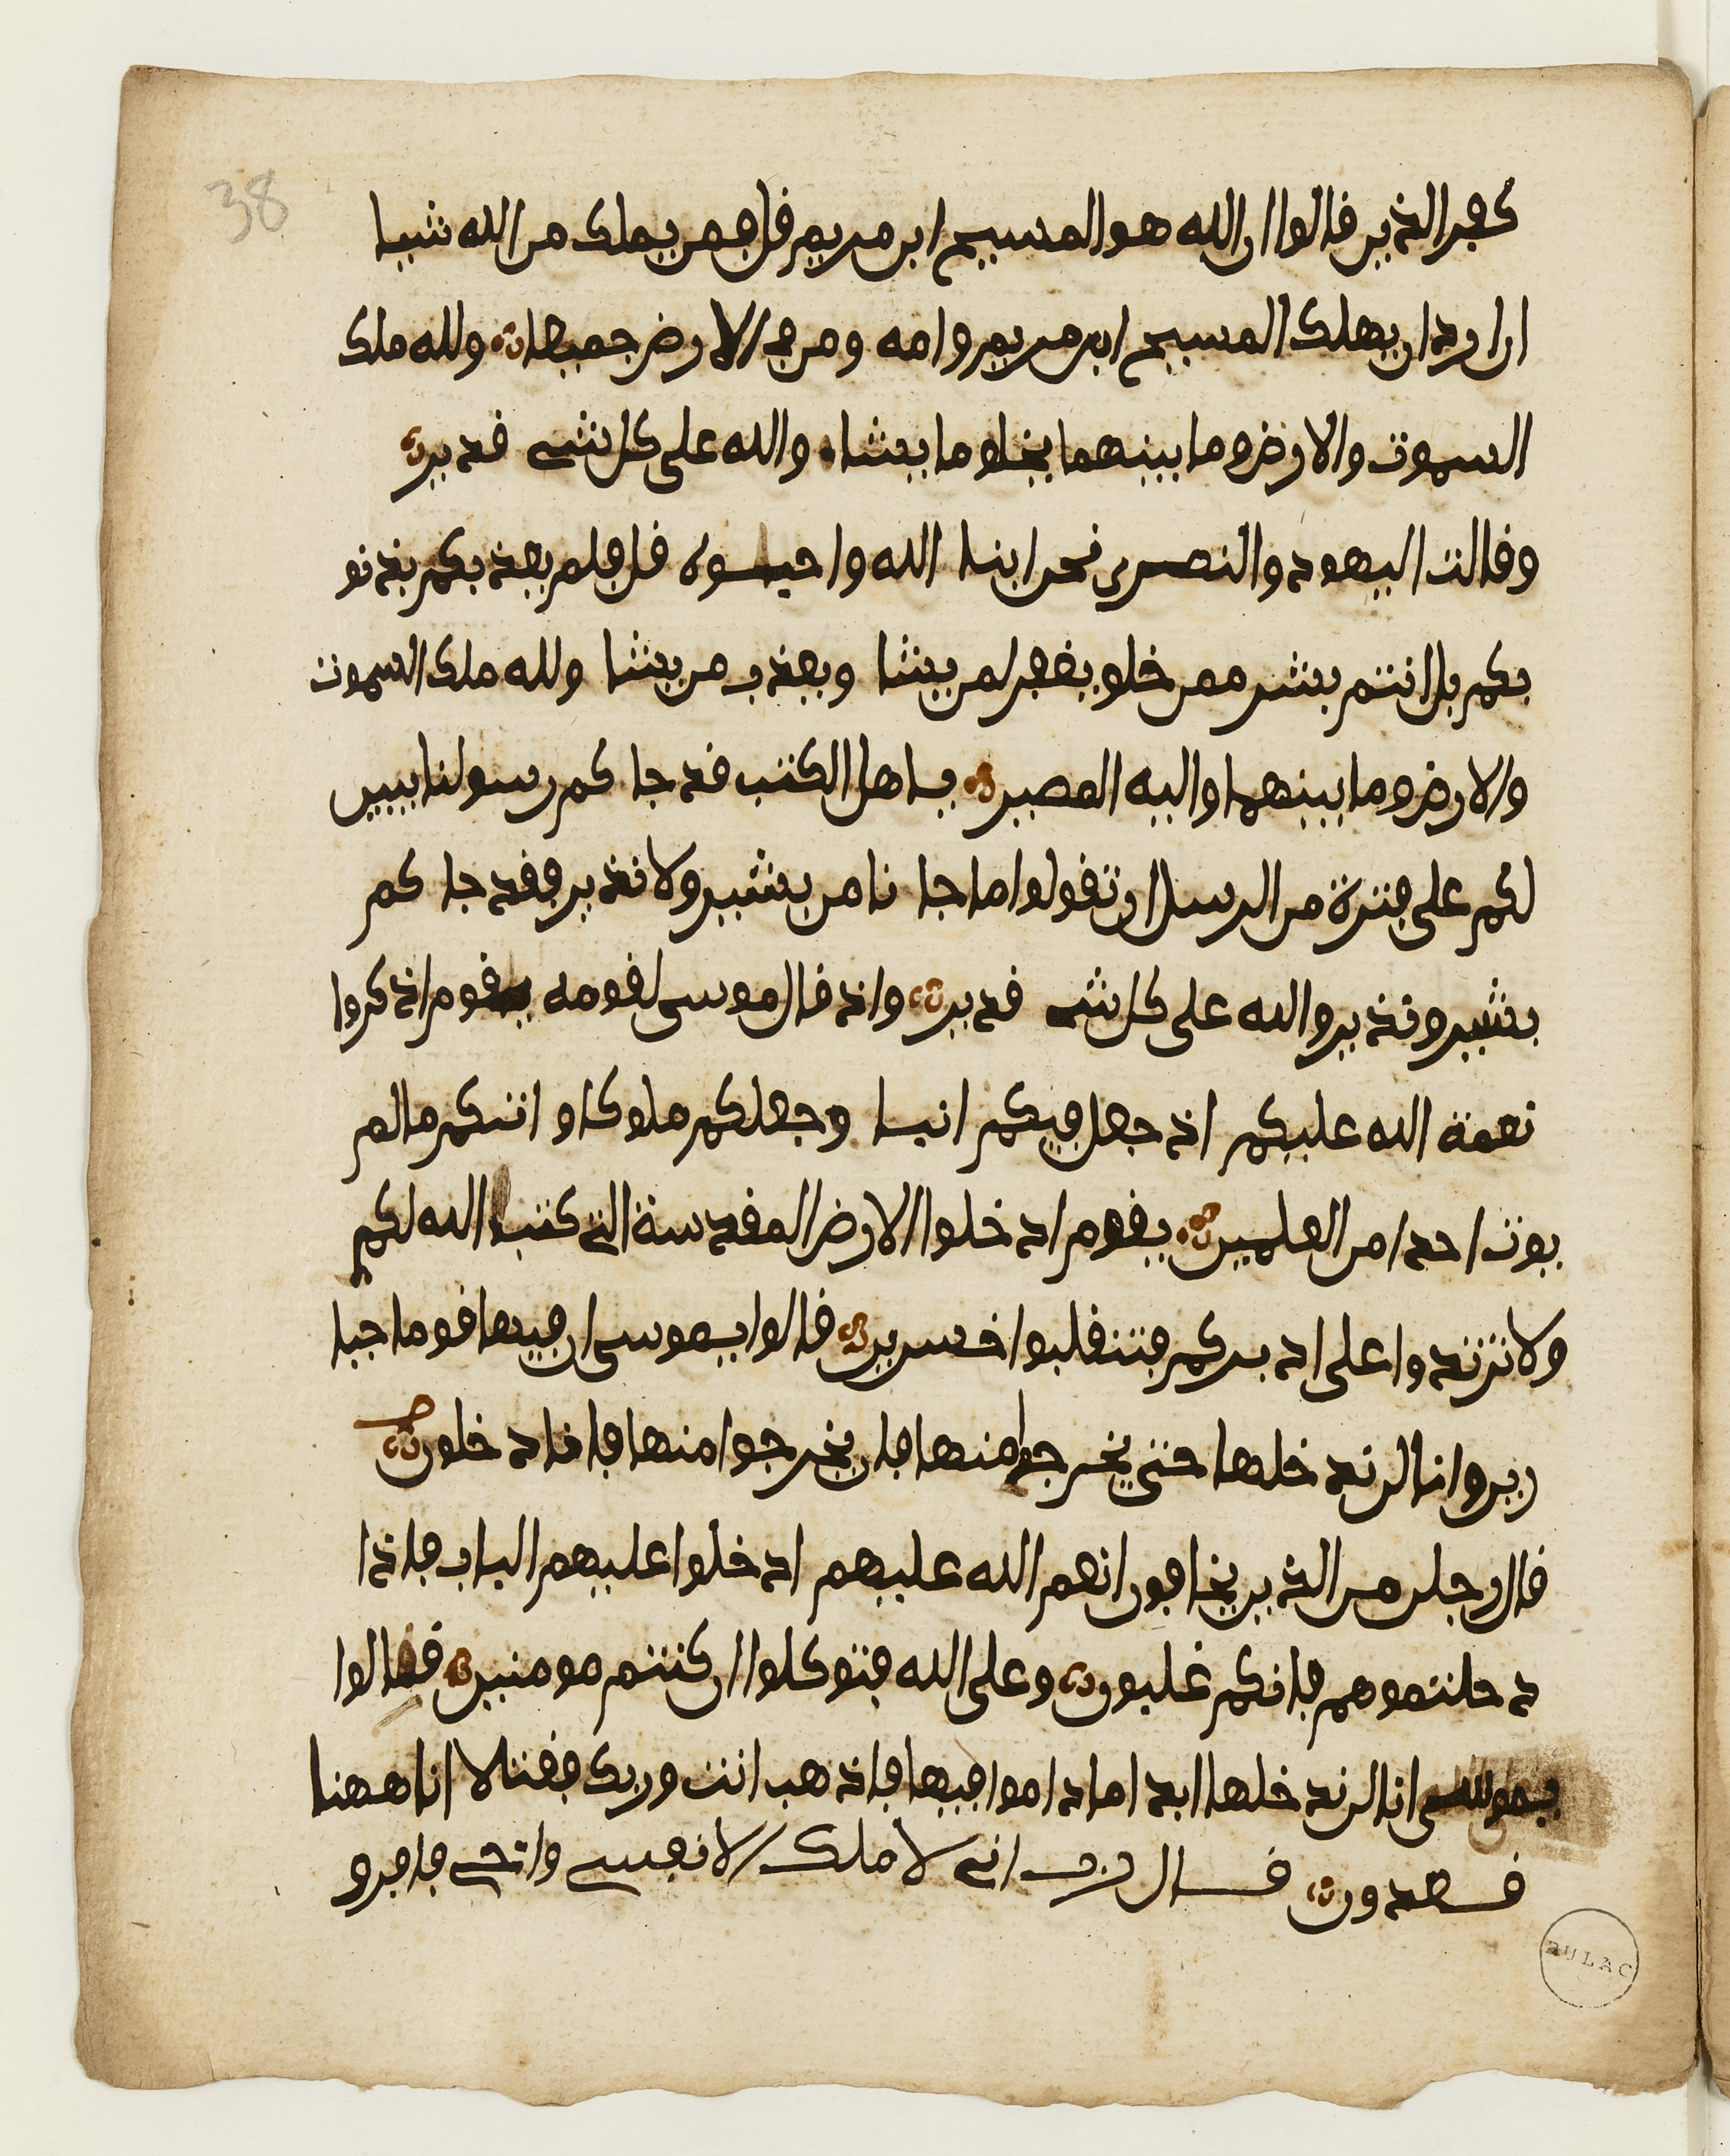 38
كفر الذين قالوا ان الله هو المسيح ابن مريم قل فمن يملك من الله شيا
ان اراد ان يهلك المسيح ابن مريم وامه ومن في الارض جميعا ولله ملك
السموت والارض وما بينهما يخلق ما يشاء والله على كل شي قدير
وقالت اليهود والنصرى نحن ابنا الله واحبوه قل فلم يعذبكم بذنو
بكم بل انتم بشر ممن خلق يغفر لمن يشا ويعذب من يشا ولله ملك السموت
والارض وما بينهما واليه المصير ياهل الكتب قد جا كم رسولنا يبين
لكم على فترة من الرسل ان تقولوا ما جا نا من بشير ولا نذير فقد جا كم
بشير ونذير والله على كل شي قدير واذ قال موسى لقومه يقوم اذكروا
نعمة الله عليكم اذ جعل فيكم انبيا وجعلكم ملوكا و اتيكم ما لم
يوت احدا من العلمين يقوم ادخلوا الارض المقدسة التي كتب الله لكم
ولا ترتدوا على ادبركم فتنقلبوا خسرين قالوا يموسى ان فيها قوما جبا
رين وانا لن ندخلها حتى يخرجوا منها فان يخرجوا منها فانا دخلون
قال رجلن من الذين يخافون انعم الله عليهم ادخلوا عليهم الباب فاذا
دخلتموهم فانكم غلبون وعلى الله فتوكلوا ان كنتم مومنين قالوا
يموسى انا لن ندخلها ابدا ما داموا فيها فاذهب انت وربك فقتلا انا ههنا
قعدون قال رب اني لا املك الا نفسي واخي فافرق
BULAC